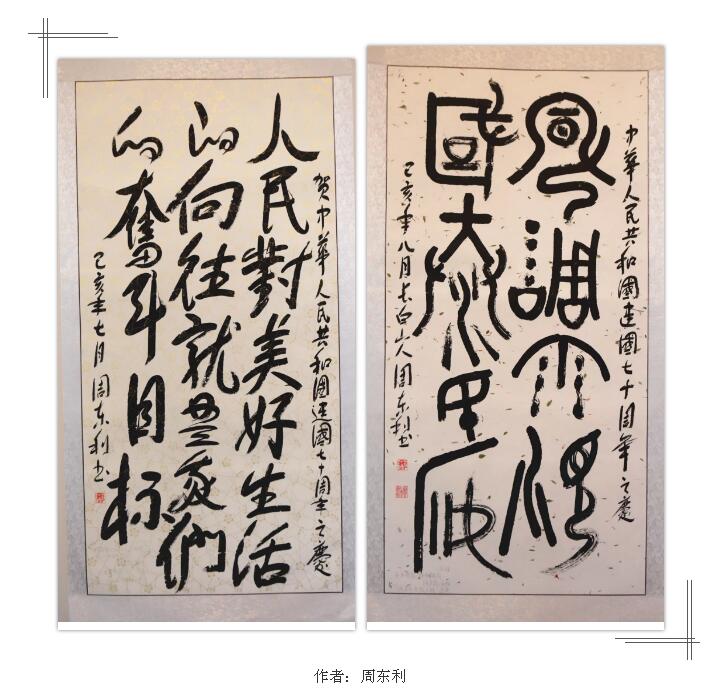 贺中華人民共和國建國七十周年之慶
人民對美好生活
的向往就是我們
的奮斗目标
己亥年七月周东利书
中華人民共和國建國七十周年之慶
風調雨順
國泰民安
己亥年八月长白山人周东利书
作者：周东利